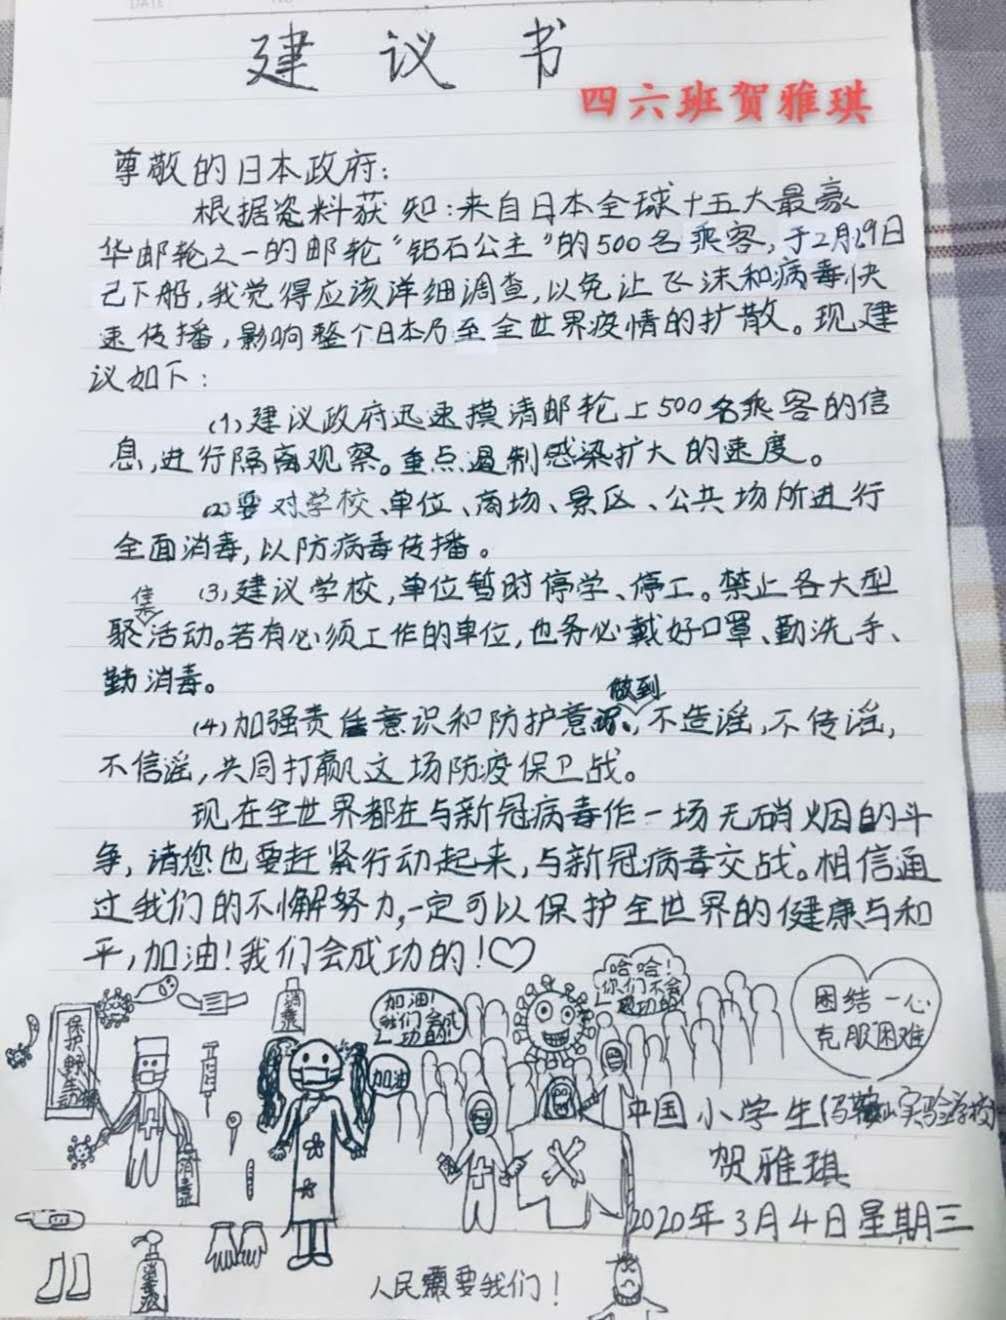 建议书
四六班贺雅琪
尊敬的日本政府：
根据资料获知：来自日本全球十五大最豪
华邮轮之一的邮轮“钻石公主”的500名乘客，于2月19日
已下船，我觉得应该详细调查，以免让飞沫和病毒快
速传播，影响整个日本乃至全世界疫情的扩散。现建
议如下：
(1)建议政府迅速摸清邮轮上500名乘客的信
息，进行隔离观察。重点遏制感染扩大的速度。
(2)要对学校、单位、商场、景区、公共场所进行
全面消毒，以防病毒传播。
(3)建议学校，单位暂时停学、停工。禁止各大型
聚集活动。若有必须工作的单位，也务必戴好口罩、勤洗手、
勤消毒。
(4)加强责任意识和防护意识、做到不造谣，不传谣，
不信谣，共同打赢这场防疫保卫战。
现在全世界都在与新冠病毒作一场无硝烟的斗
争，请您也要赶紧行动起来，与新冠病毒交战。相信通
过我们的不懈努力，一定可以保护全世界的健康与和
平，加油！我们会成功的！♡
保护野生动物
消毒
加油！
我们会成
功的！
加油
哈哈！
你们不会
成功的
团结一心
克服困难
消毒
中国小学生(马鞍山实验学校)
贺雅琪
2020年3月4日星期三
消毒液
人民需要我们！